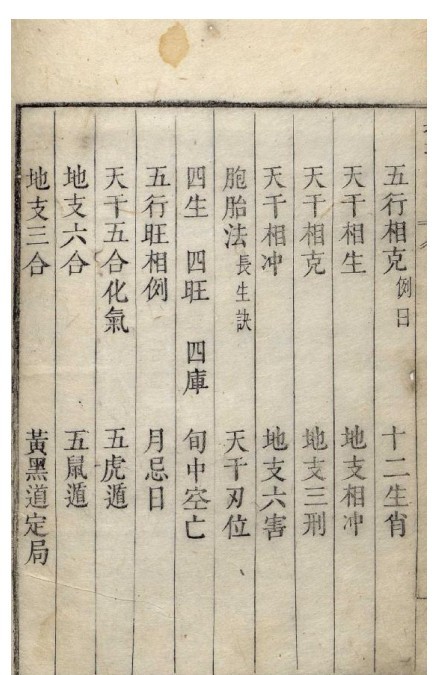 五行相克例日 十二生肖
天干相生 地支相冲
天干相克 地支三刑
天干相冲 地支六害
胞胎法長生訣 天干刃位
四生 四旺 四庫 旬中空亡
五行旺相例 月忌日
天干五合化氣 五虎遁
地支六合 五鼠遁
地支三合 黃黑道定局